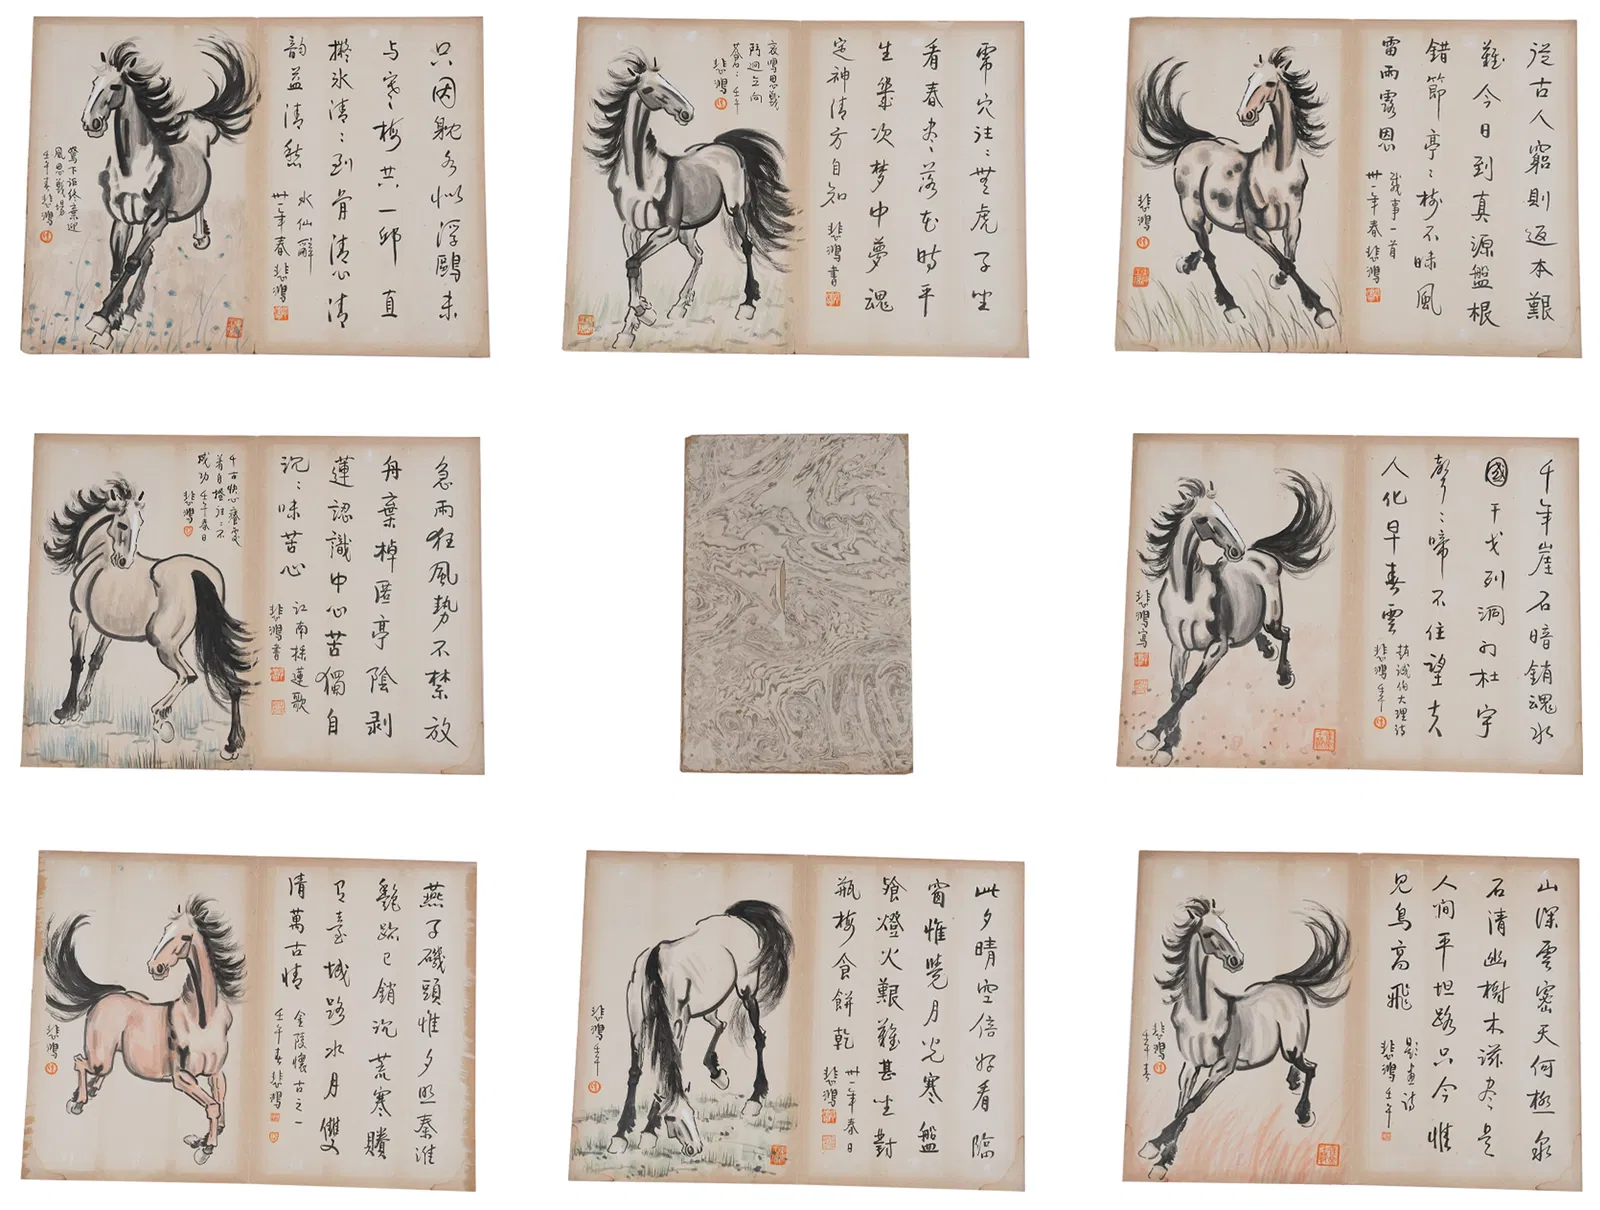 只因耽似浮鷗未
与寒梅共一邱直
擬冰清々到骨清心清
韵益清愁
水仙辭
卅一年春悲鴻
駑下詎終棄迎
風思戰場
壬午春悲鴻
虎穴往々無虎子坐
看春盡落花時平
生幾次夢中夢魂
定神清方自知
悲鴻書
哀鳴思戰
鬥迥立向
蒼々壬午
悲鴻
從古人窮則返本艱
難今日到真源盤根
錯節亭々樹不昧風
雷雨露恩
感事一首
卅一年春悲鴻
悲鴻
急雨狂風勢不禁放
舟棄棹匿亭陰剥
蓮認識中心苦獨自
沉々味苦心
江南採蓮歌
悲鴻書
千古快心癢處
著自搔往々不
成功壬午春日
悲鴻
千年崖石暗銷魂水
國干戈列洞門杜宇
聲々啼不住望夫
人化早春雲
趙誠伯大理詩
悲鴻壬午
悲鴻寫
燕子磯頭惟夕照秦淮
艷跡已銷沉荒寒賸
有臺城路水月雙
清萬古情
金陵懷古之一
壬午春悲鴻
悲鴻
此夕晴空倍好看臨
窗惟覺月光寒盤
飧燈火艱難甚坐對
瓶梅食餅乾
卅一年春日
悲鴻
悲鴻壬午
山深雲密天何極泉
石清幽樹木滋盡是
人间平坦路只今惟
見鳥高飛
題畫詩
悲鴻壬午
悲鴻
壬午春